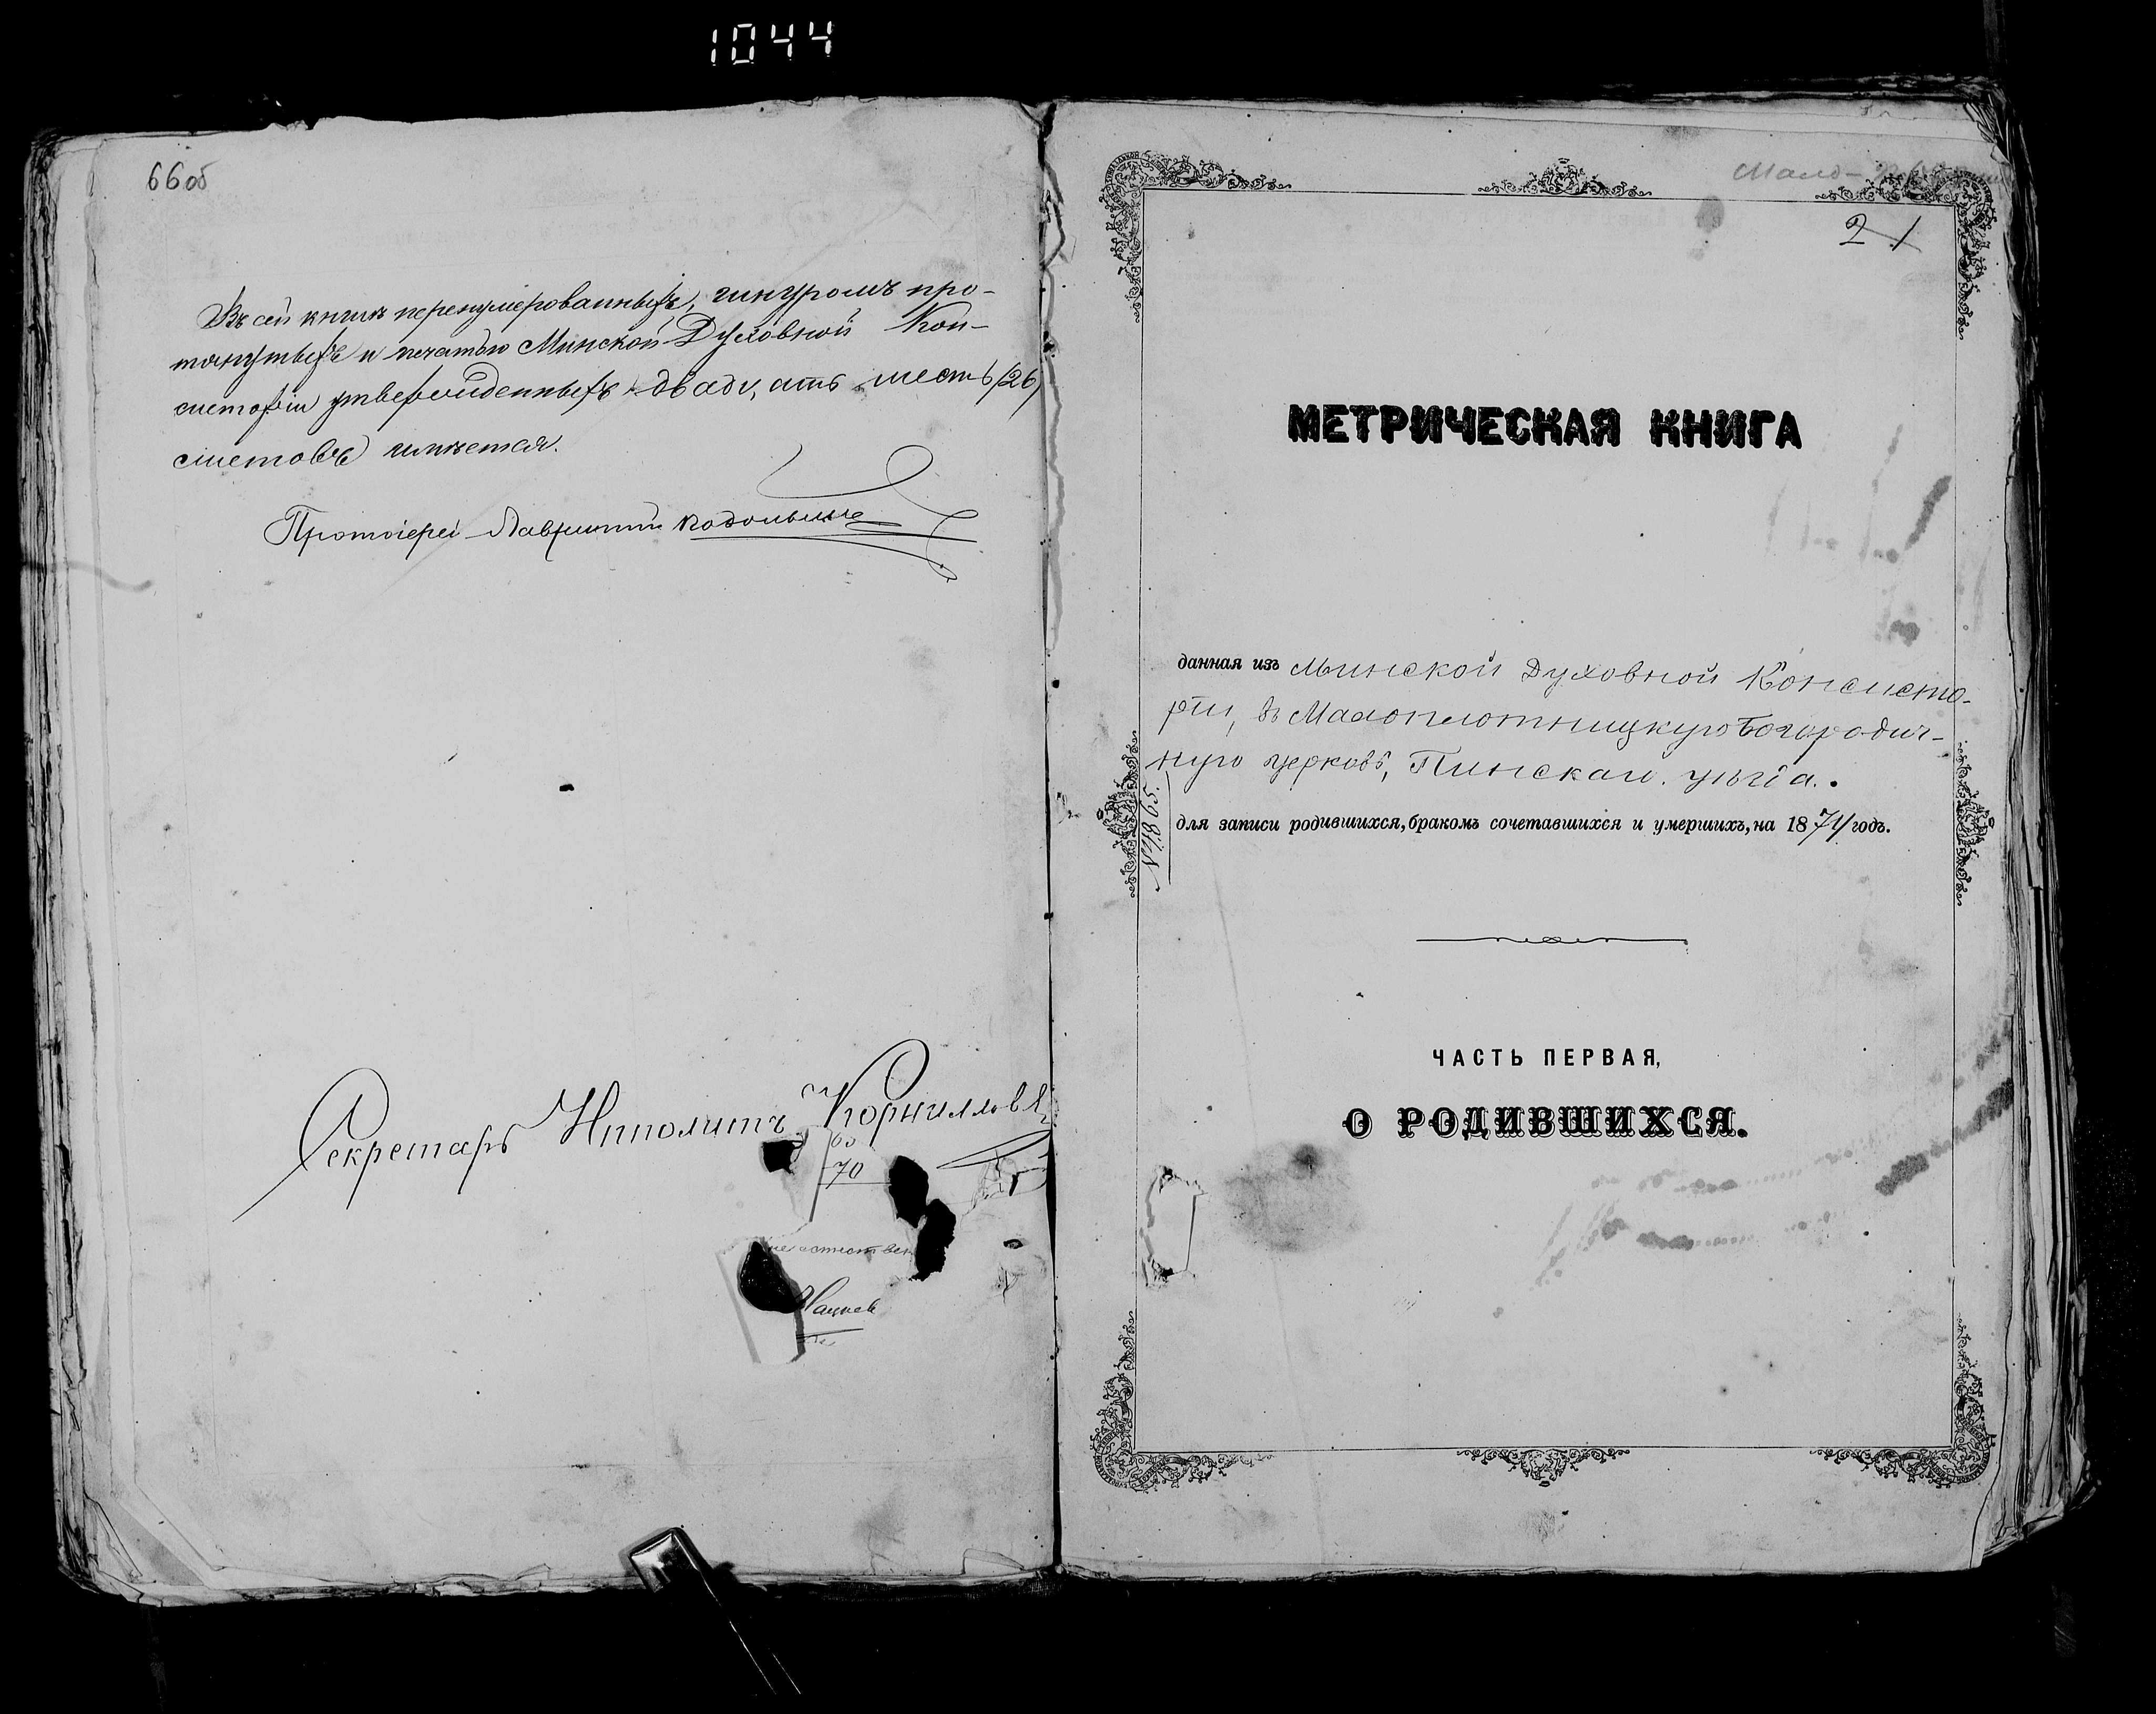 1044
66об
Въ сей книгѣ перенумерованныхъ, шнуромъ про-
тянутыхъ и печатью Минской Духовной Кон-
систоріи утвержденныхъ двадцать шесть (26)
листовъ имѣется.
Протоіерей Лаврентій
Секретарь Ипполитъ Корниллов
70
Мало-
2 1
МЕТРИЧЕСКАЯ КНИГА
данная изъ Минской Духовной Консисто-
ріи, въ Малоплотницкую Богородич-
ную церковь, Пинскаго уѣзда.
№ 4865.
для записи родившихся, бракомъ сочетавшихся и умершихъ, на 1871 годъ.
ЧАСТЬ ПЕРВАЯ,
О РОДИВШИХСЯ.